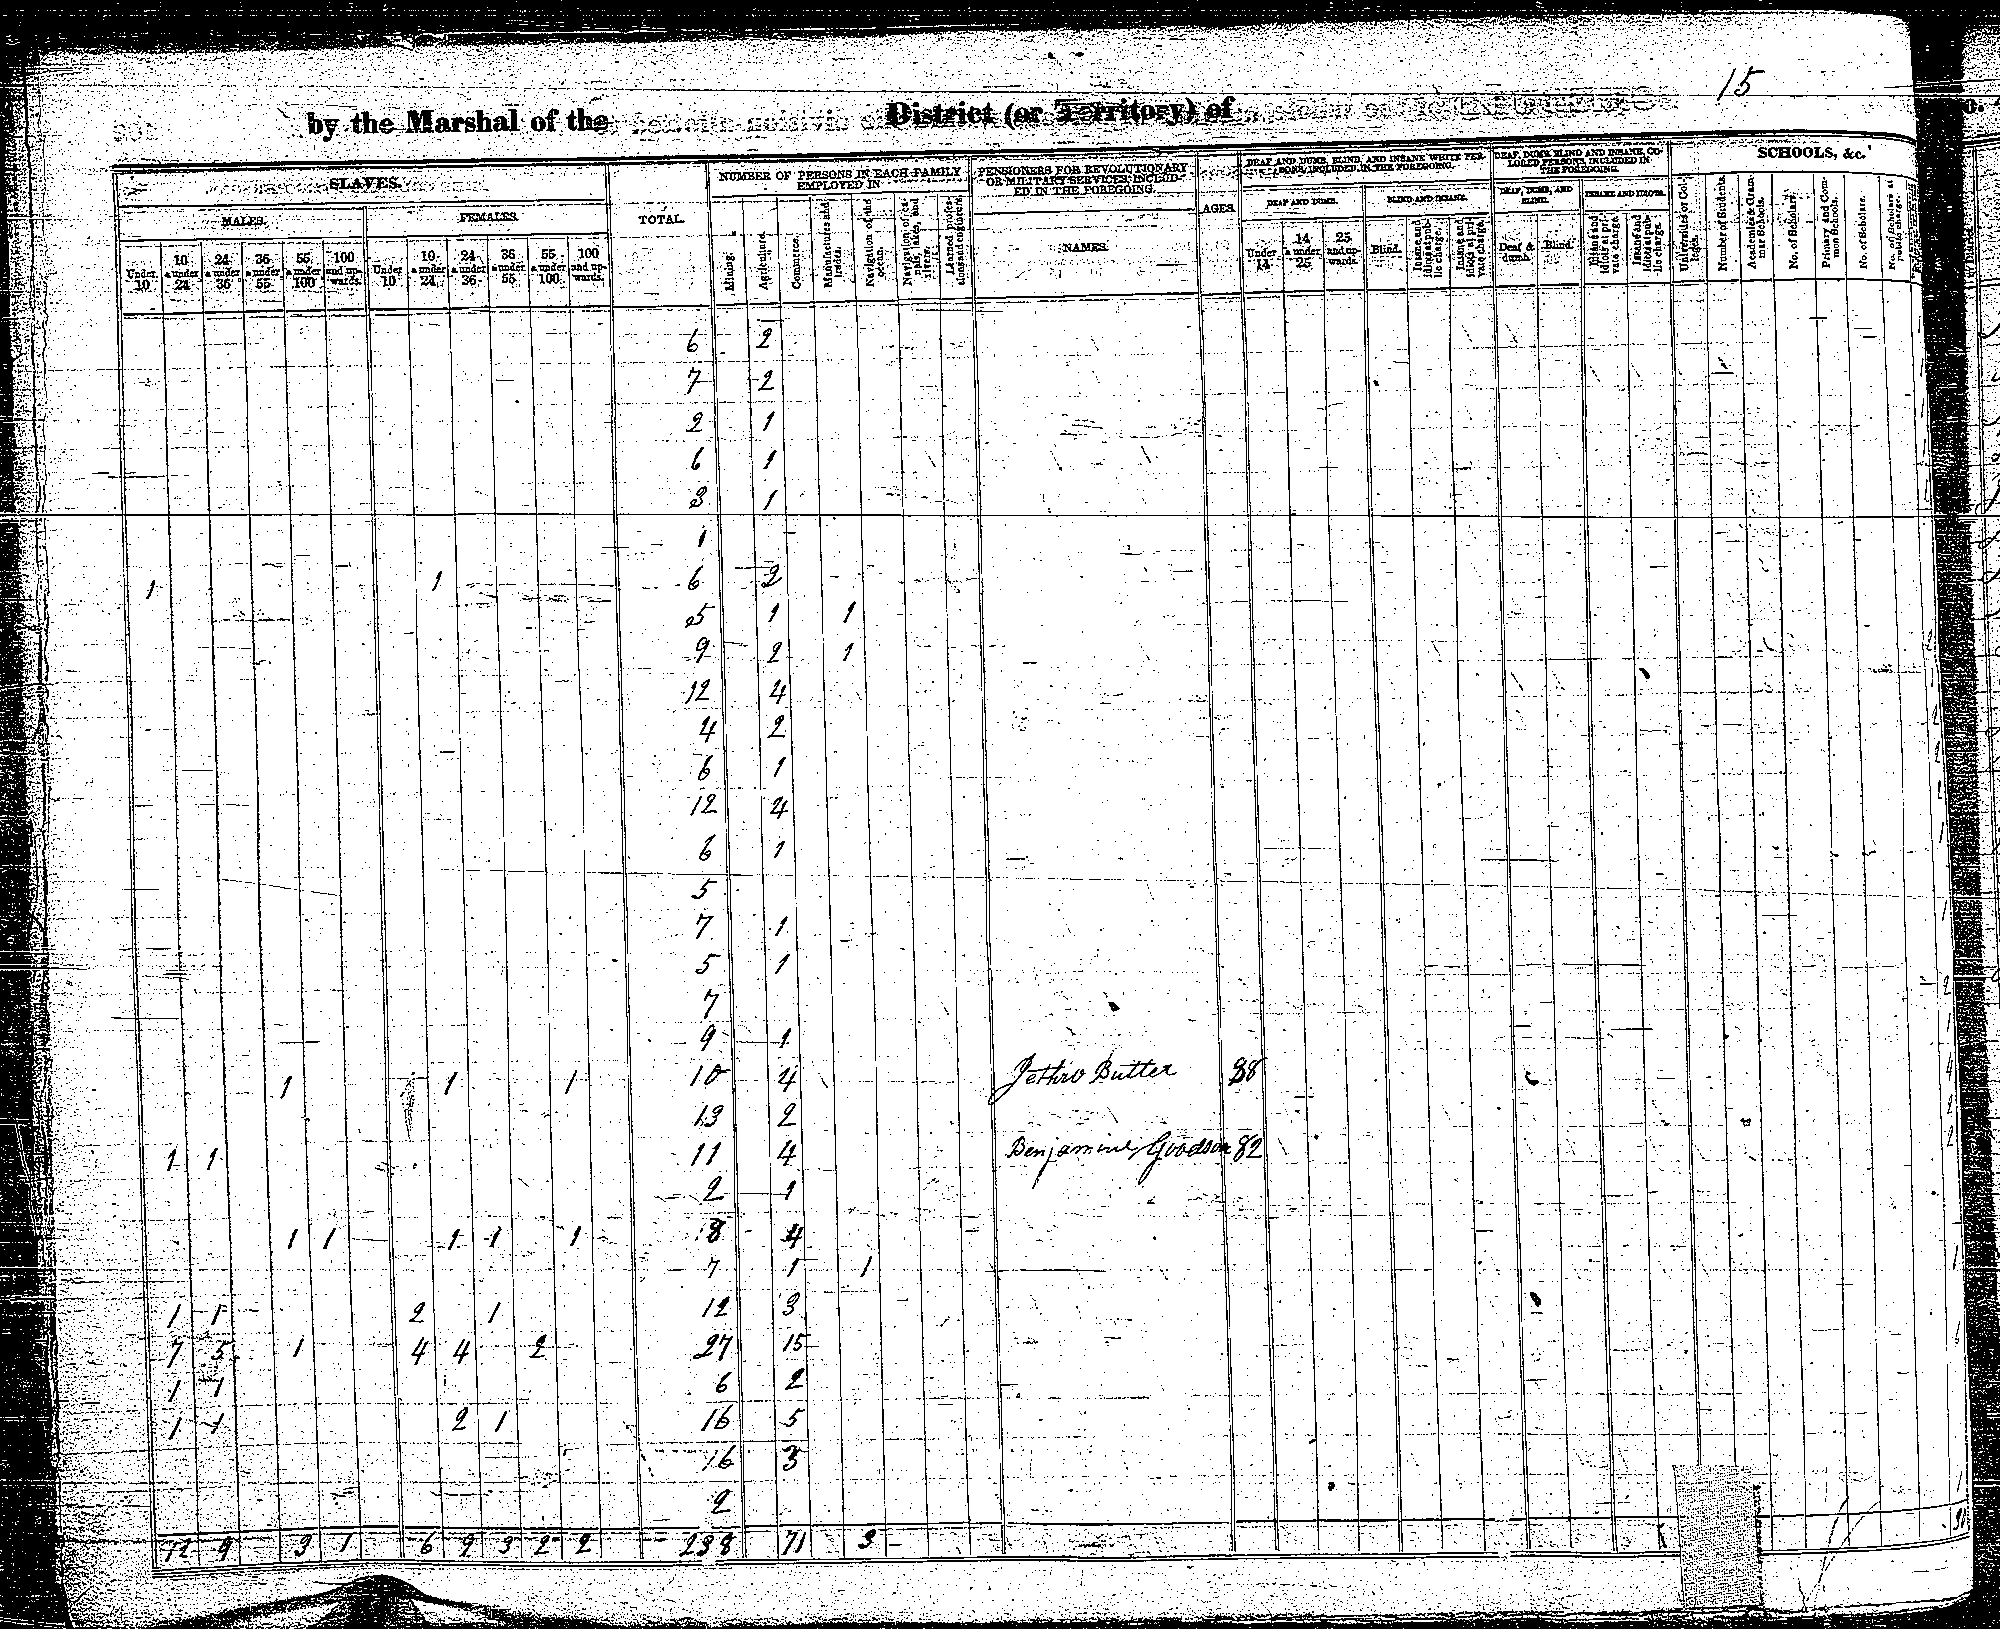 15
by the Marshal of the District (or Territory) of
SLAVES.
MALES.
FEMALES.
TOTAL.
NUMBER OF PERSONS IN EACH FAMILY EMPLOYED IN
PENSIONERS FOR REVOLUTIONARY OR MILITARY SERVICES, INCLUDED IN THE FOREGOING.
NAMES.
AGES.
DEAF AND DUMB, BLIND, AND INSANE WHITE PERSONS, INCLUDED IN THE FOREGOING.
DEAF AND DUMB.
BLIND AND INSANE.
DEAF, DUMB, BLIND AND INSANE, COLORED PERSONS, INCLUDED IN THE FOREGOING.
DEAF, DUMB, AND BLIND.
INSANE AND IDIOTS.
SCHOOLS, &c.
Under 10 10 & under 24 24 & under 36 36 & under 55 55 & under 100 100 and upwards. Under 10 10 & under 24 24 & under 36 36 & under 55 55 & under 100 100 and upwards.
Mining. Agriculture. Commerce. Manufactures and trades. Navigation of the ocean. Navigation of canals, lakes, and rivers. Learned professions and engineers.
Under 14 14 & under 25 25 and upwards. Blind. Insane and idiots at public charge. Insane and idiots at private charge.
Deaf & dumb. Blind. Insane and idiots at private charge. Insane and idiots at public charge.
Universities or Colleges. Number of Students. Academies & Grammar Schools. No. of Scholars. Primary and Common Schools. No. of Scholars. No. of Scholars at public charge.
6 2
7 2
2 1
6 1
3 1
1
1 1 6 2
5 1 1
9 2 1
12 4
4 2
6 1
12 4
6 1
5
7 1
5 1
7
9 1
1 1 1 10 4 Jethro Butler 88
13 2
1 1 11 4 Benjamine Goodson 82
2 1
1 1 1 1 1 8 4
7 1 1
1 1 2 1 12 3
7 5 1 4 4 2 27 15
1 1 6 2
1 1 2 1 16 5
16 3
2
12 9 3 1 6 9 3 2 2 238 71 3